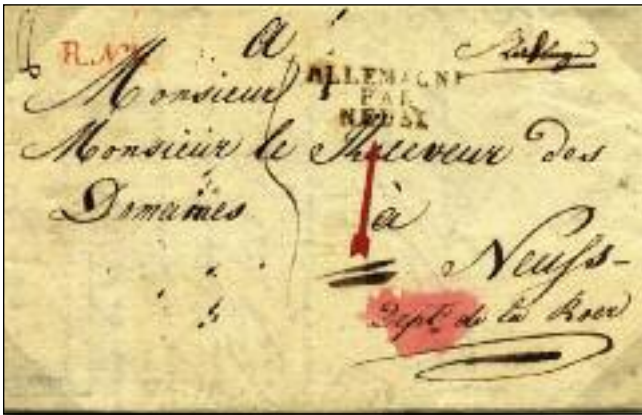 A
ALLEMAGNE
PAR
NEUSS
Monsieur
Monsieur le Receveur des
Domaines
à
Neuſs-
Dept. de la Roer